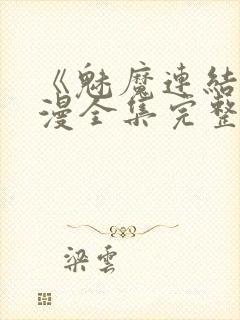 《魅魔連結
漫全集完整
梁雲